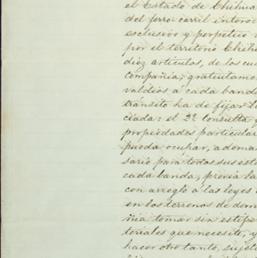 el Estado de Chihua
del ferro carril interoc
esclusivo y perpetuo
por el territorio Chihu
diez artículos, de los cu
compañía; gratuitamen
valdíos a cada band
tránsito ha de fijar
ciada: el 2º consulta
propiedades particular
pueda ocupar, ademas
sario para todos sus est
cada banda, previa la
con arreglo a las leyes
en los terrenos de dom
ñia tomar sin estipe
toriales que necesite, y
hacer otro tanto, sujet